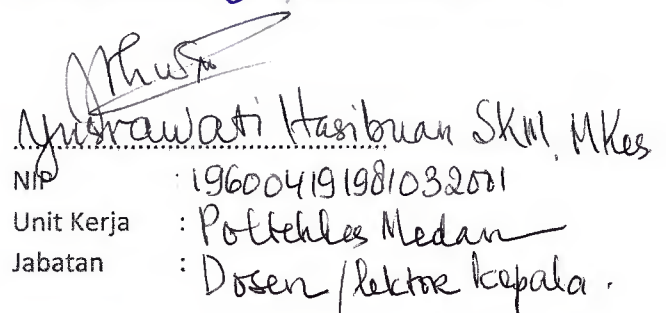 Yusrawati Hasibuan SKM, MKes
NIP : 196004191981032001
Unit Kerja : Poltekkes Medan
Jabatan : Dosen / lektor kepala .